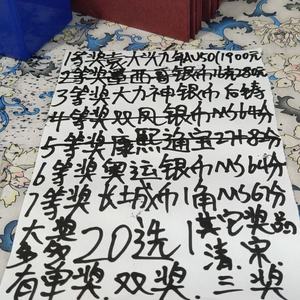 1等奖袁大头九年AU50(1900元
2等奖墨西哥银币1280元
3等奖大力神银币后铸
4等奖双凤银币MS64分
5等奖康熙通宝27+82分
6等奖奥运银币MS64分
7等奖长城币1角MS67分
大奖 20选1 其它奖品
多多 清.宋.
有单奖.双奖.三奖